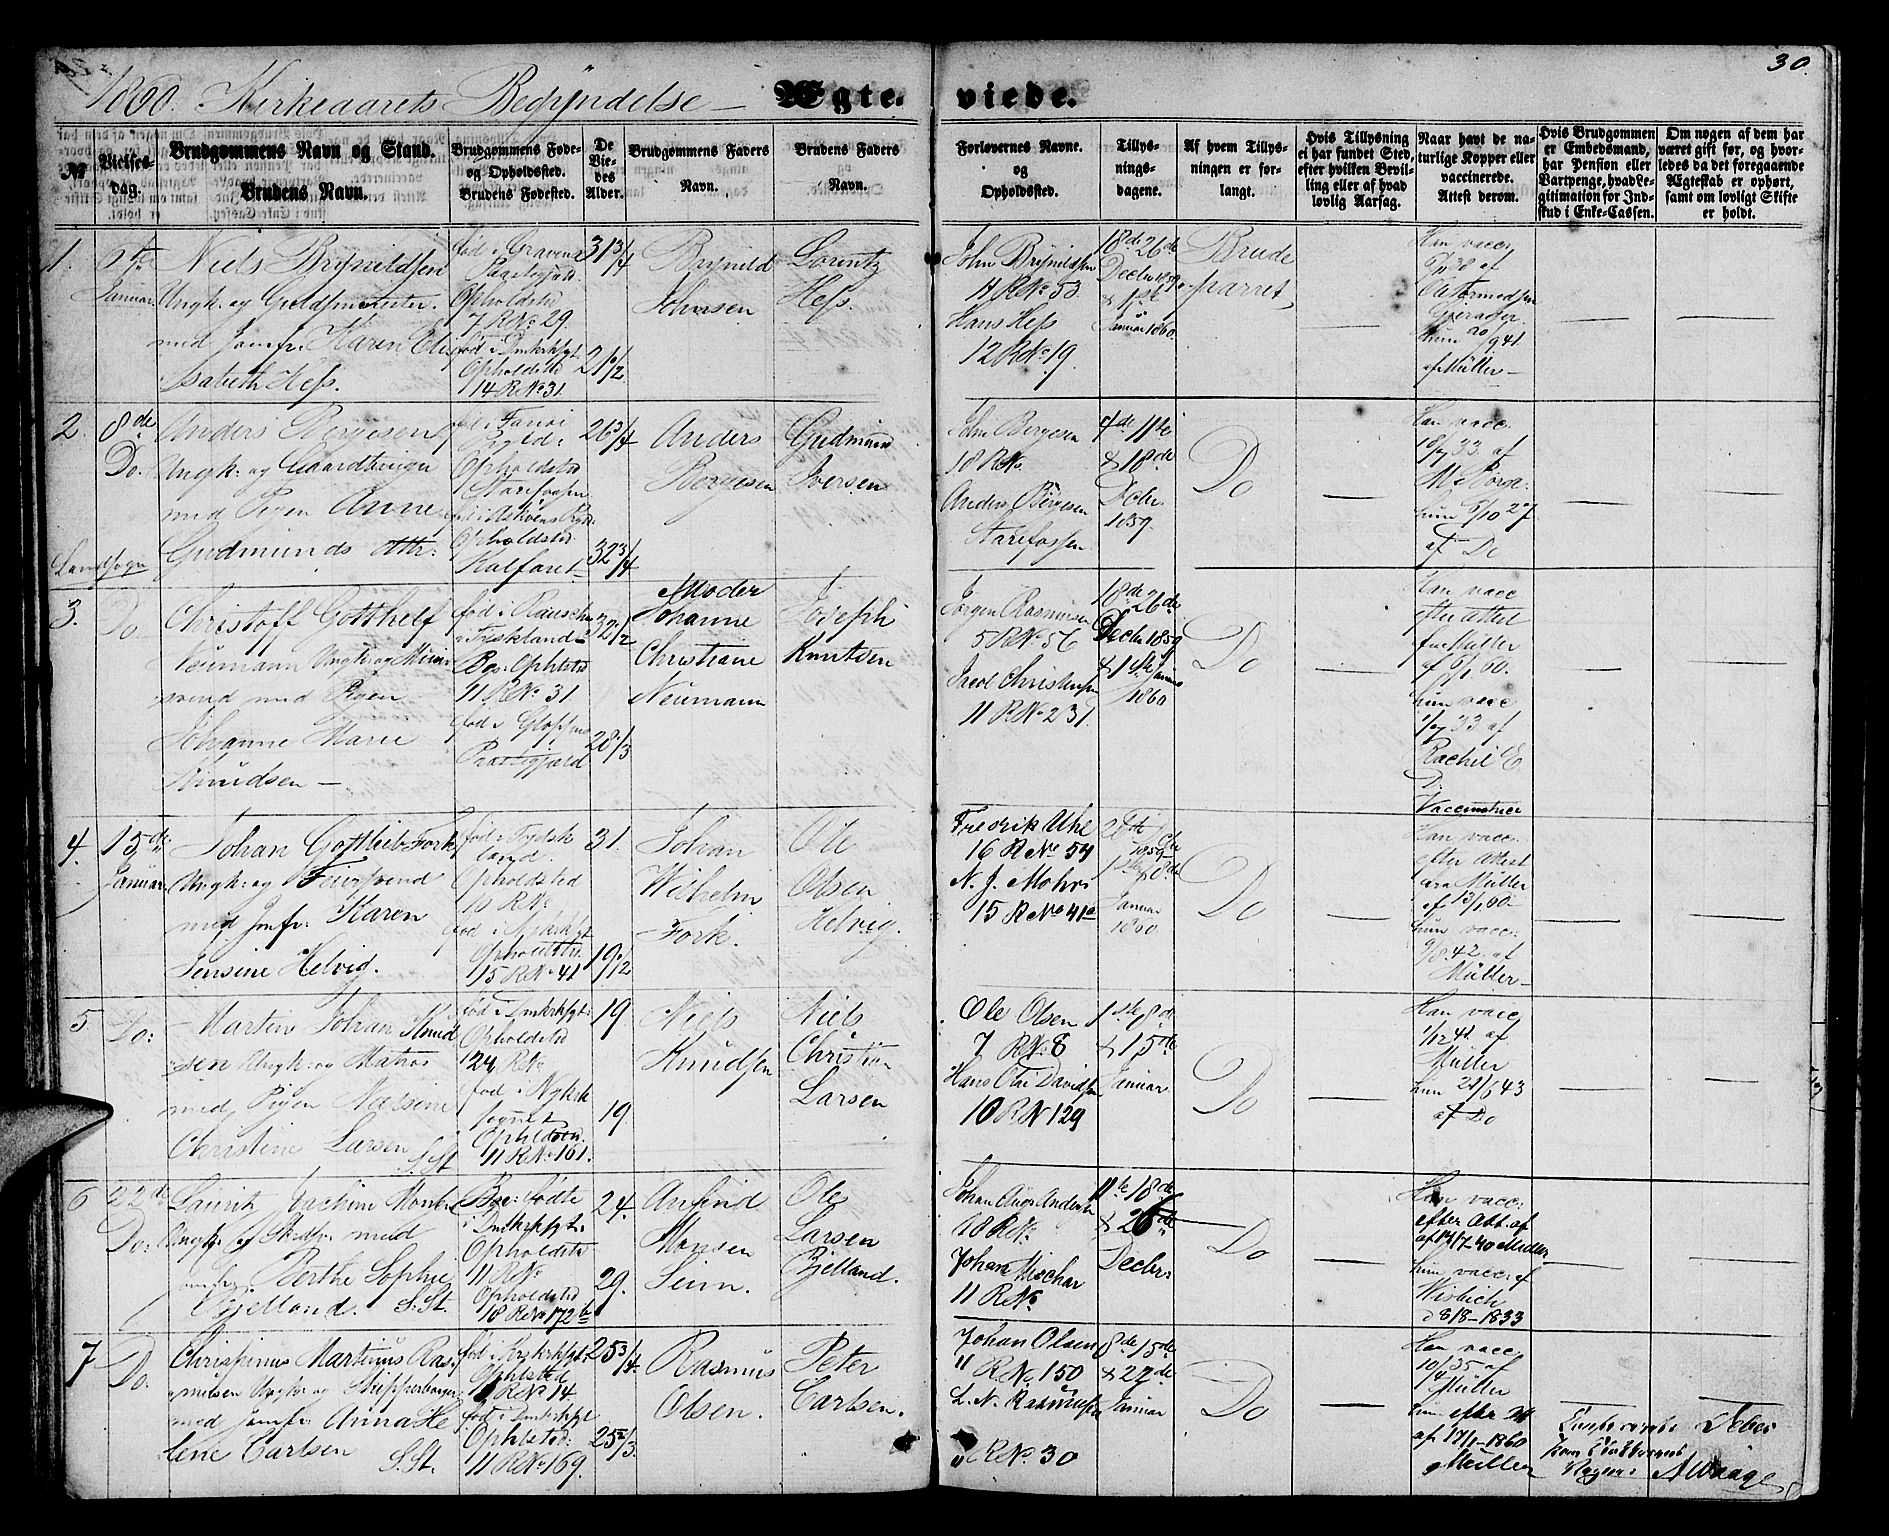 1860. Kirkeaarets Begyndelse — Ægteviede. 30.
No
Vielses-dag.
Brudgommens Navn og Stand.
Brudens Navn.
Brudgommens Føde- og Opholdssted.
Brudens Fødested.
De Viedes Alder.
Brudgommens Faders Navn.
Brudens Faders Navn.
Forlovernes Navne.
og
Opholdssted.
Tillysningsdagene.
Af hvem Tillysningen er forlangt.
Hvis Tillysning ei har fundet Sted, efter hvilken Bevilling eller af hvad lovlig Aarsag.
Naar havt de naturlige Kopper eller vaccinerede.
Attest derom.
Hvis Brudgommen er Embedsmand, har Pension eller Vartpenge, hvad Legitimation for Indskud i Enke-Cassen.
Om nogen af dem har været gift før, og hvorledes da det foregaaende Ægteskab er ophørt, samt om lovligt Skifte er holdt.
1.
6te Januar.
Niels Brynildsen
Ungk: og Guldsmedsster.
med Jomfr. Karen Eli-
sabeth Hess.
fød i Gravens
Præstegjeld.
Opholdsted
7 R No 29.
fød i Dmkrksgt.
Opholdsted
14 R No 31.
31 3/4
21 1/2
Brynild
Johnsen
Lorentz
Hess.
John Brynildsen
11 R No 53.
Hans Hess
12 R No 19.
18de 26de
Decbr 1859
& 1ste
Januar 1860.
Brude
parret,
Han vacc.
af
hun
af Müller —
2.
8de
Do.
Landsogn
Anders Børgesen
Ungk: og Gaardbruger
med Pigen Anne
Gudmunds dttr:
Opholdsted
Starefossen
Opholdsted.
Kalfaret
26 3/4
32 3/4
Anders
Børgesen
Gudmund
Iversen
John Børgesen
18 R No
Anders Børgesen
Starefossen
4de 11te
& 18de
Decbr.
1859.
Do
Han vacc.
18/7 33. af
hun 6/10 27
af Do
3.
Do.
Christoff Gotthelf
Neumann Ungk: og Muur
svend med Pigen
Johanne Marie
Knudsen —
fød i
i Tyskland
Bgs: Ophlsted
11 R No 31
fød i Gloppens
Præstegjæld
32 1/2
28 1/3
Moder
Johanne
Christiane
Neumann
Joseph
Knudsen
Jørgen Rasmussen
5 R No 56
Jacob Christensen
11 R No 231.
18de 26de
Decbr 1859
& 1ste Januar
1860
Do
Han vacc
efter Attest
fra Müller
af 6/1 60.
hun vacc
1/7 33 af
Rachel E
D.
Vaccinatrice
4.
15de
Januar.
Johan Gottlieb Fork
Ungk: og Feiersvend
med Jmfr. Karen
Jensine Helvig.
fød i Tydsk
land.
Opholdsted
10 R No
fød i Nykrkgt
Opholdstd.
15 R No 41
31.
19 1/12
Johan
Wilhelm
Fork.
Ole
Olsen
Helvig.
Fredrik Uhl
16 R No 54
N. J. Mohr.
15 R No 41a
1859
1ste 8de
Januar
1860
Do
Han vacc.
efter Attest
fra Müller
af 13/1 60
hun vacc:
9/8 42. af
Müller —
5
Do:
Martin Johan Knud
sen Ungk: og Matros
med Pigen Nassine
Christine Larsen
S.St
fød i Dmkrksgt:
Opholdsted
24, R No
fød i Nykrk
sognet
Opholdsted.
11 R No 161.
19
19.
Niels
Knudsen
Niels
Christian
Larsen
Ole Olsen
7 R No 8
Hans Olai Davidsen
10 R No 129
1ste 8de
& 15de
Januar
Do
Han vacc,
1/12 41. af
Müller
hun 21/6 43
af Do
6
22de
Do:
Lauritz Joachim Monsen
Ungk: og Skredr: med
Jomfr. Berthe Sophie
Bjelland. S.St.
Bge: fødte
i Dmkrksgt:
Opholdsted
11 R No
Opholdsted
18 R No 172b
24.
29.
Arfind
Monsen
Seim.
Ole
Larsen
Bjelland.
Johan Aug: Andersen
18 R No.
Johan Mischar
11 R No
11te 18de
& 26de
Decbr:
Do
Han vacc:
efter Att. af
hun vacc. af
Wisbech
d 8/8 - 1833
7
Do.
Chrispinus Martinus Ras-
musen Ungk: og Skipperborger
med Jomfr. Anna He
lene Carlsen S.St.
fød i Krskrksgt:
Ophlsted
2 R No 14
fød i Dmkrksgt
Ophlsted:
11 R No 169.
25 3/4.
25 2/3
Rasmus
Olsen.
Peter
Carlsen.
Johan Olsen
11 R No 150
L. N. Rasmussen
R No 30
8de 15de
& 22de
Januar
Do
Han vacc,
10/4 35 af
Müller
hun efter Att
af 17/1 - 1860
Müller